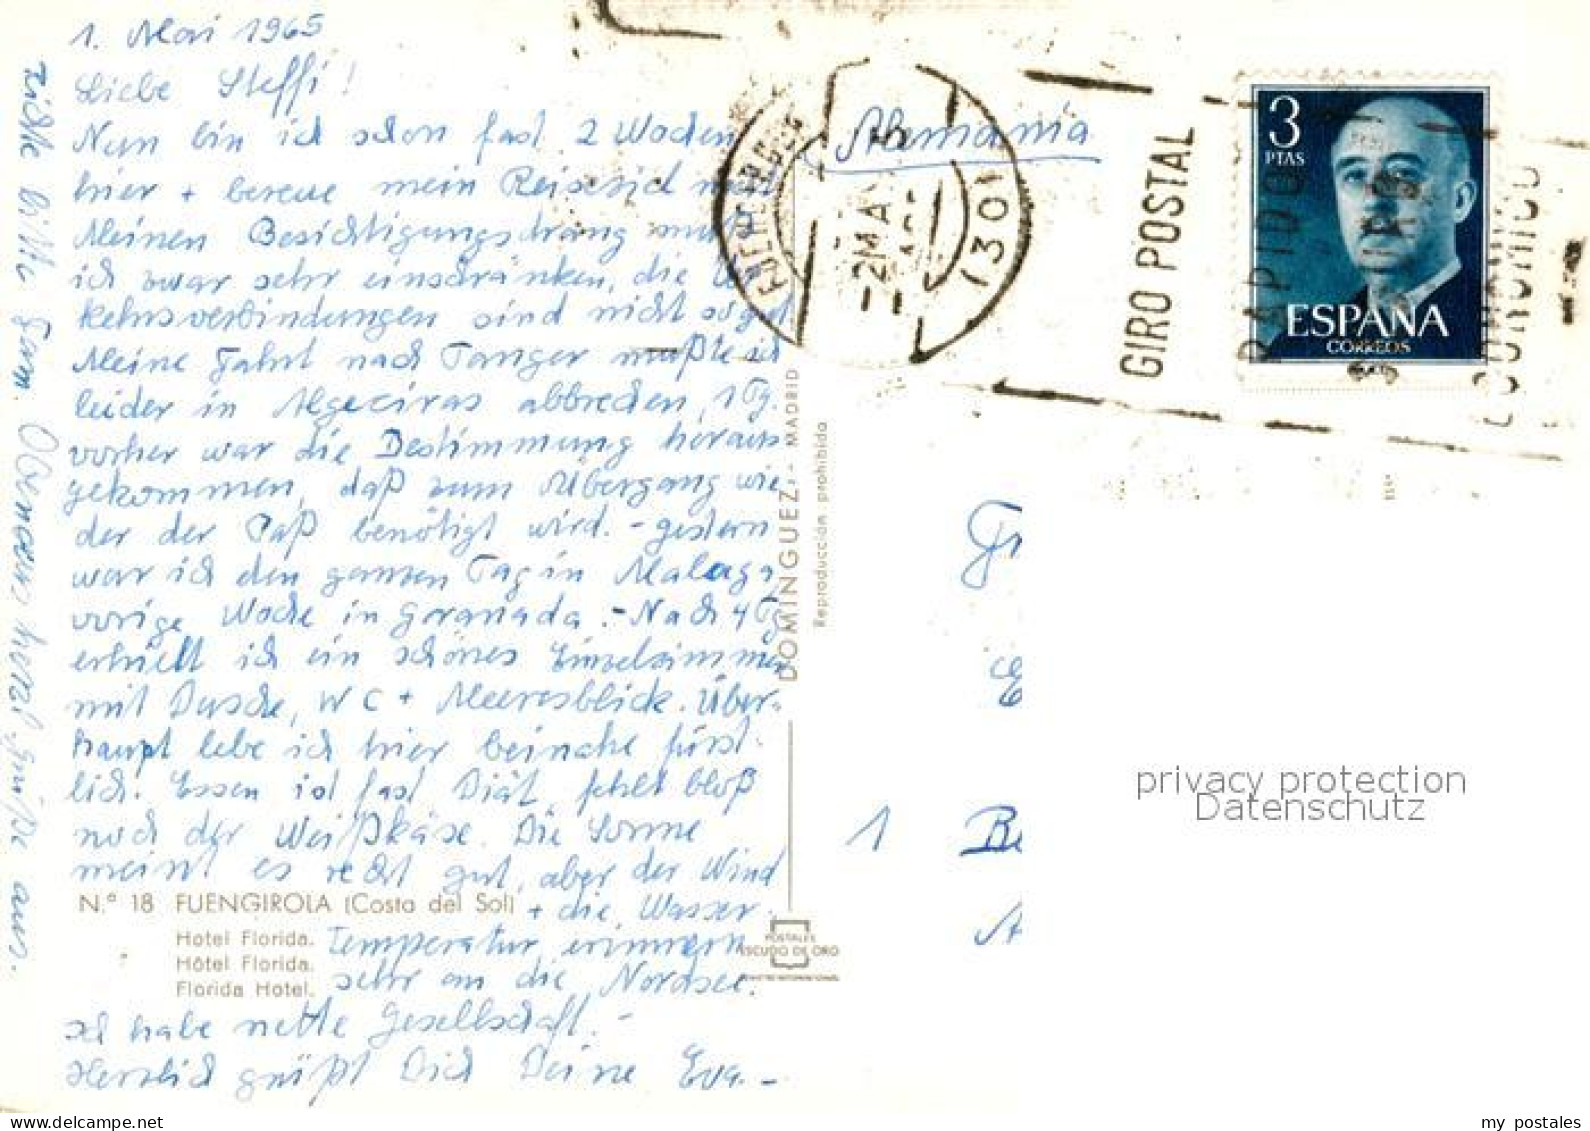 1. Mai 1965
Liebe Steffi!
Nun bin ich schon fast 2 Wochen
hier + bereue mein Reiseziel nicht
Meinen Besichtigungsdrang muß
ich zwar sehr einschränken, die Ver
kehrsverbindungen sind nicht so gut
Meine Fahrt nach Tanger mußte ich
leider in Algeciras abbrechen, 1 Tg.
vorher war die Bestimmung heraus
gekommen, daß zum Übergang wie
der der Paß benötigt wird. - gestern
war ich den ganzen Tag in Malaga
vorige Woche in Granada. - Nach 4 Tg
erhielt ich ein schönes Einzelzimmer
mit Dusche, WC + Meeresblick. Über-
haupt lebe ich hier beinahe fürst-
lich. Essen ist fast Diät, fehlt bloß
noch der Weißkäse. Die Sonne
meint es recht gut, aber der Wind
+ die Wasser-
Temperatur erinnern
sehr an die Nordsee.
Ich habe nette Gesellschaft. -
Herzlich grüßt Dich Deine Eva. -
Richte bitte Herzl. Grüße aus.
N.º 18 FUENGIROLA (Costa del Sol)
Hotel Florida.
Hôtel Florida.
Florida Hotel.
DOMINGUEZ - MADRID
Reproducción prohibida
POSTALES
ESCUDO DE ORO
Alemania
-2 MA
(301
GIRO POSTAL
RAPIDO
3
PTAS
ESPAÑA
CORREOS
Fr
E
1 Be
A
privacy protection
Datenschutz
my postales